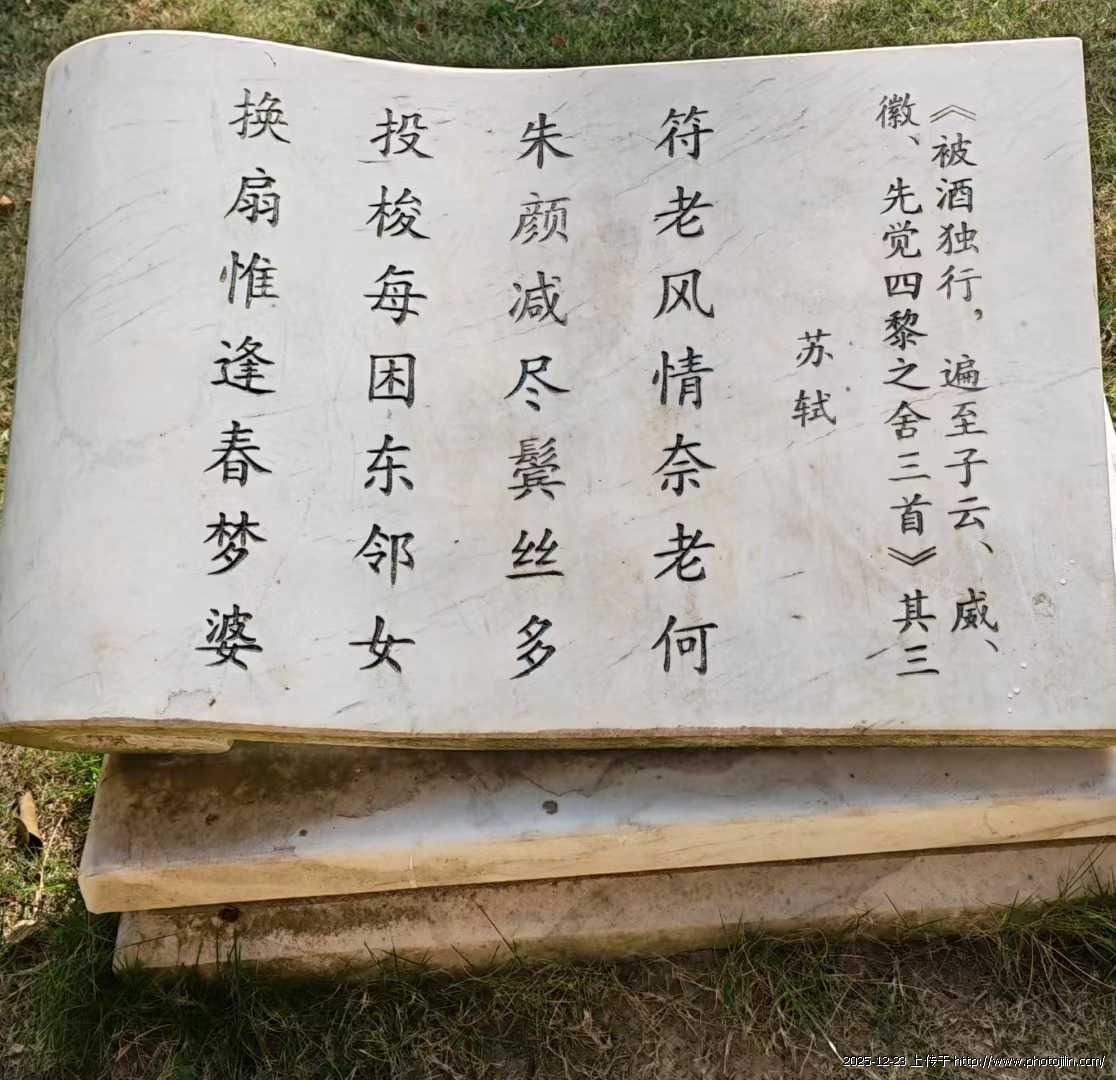 《被酒独行，遍至子云、威、
徽、先觉四黎之舍三首》其三
苏轼
符老风情奈老何
朱颜减尽鬓丝多
投梭每困东邻女
换扇惟逢春梦婆
2025-12-23 上传于 http://www.photojilin.com/